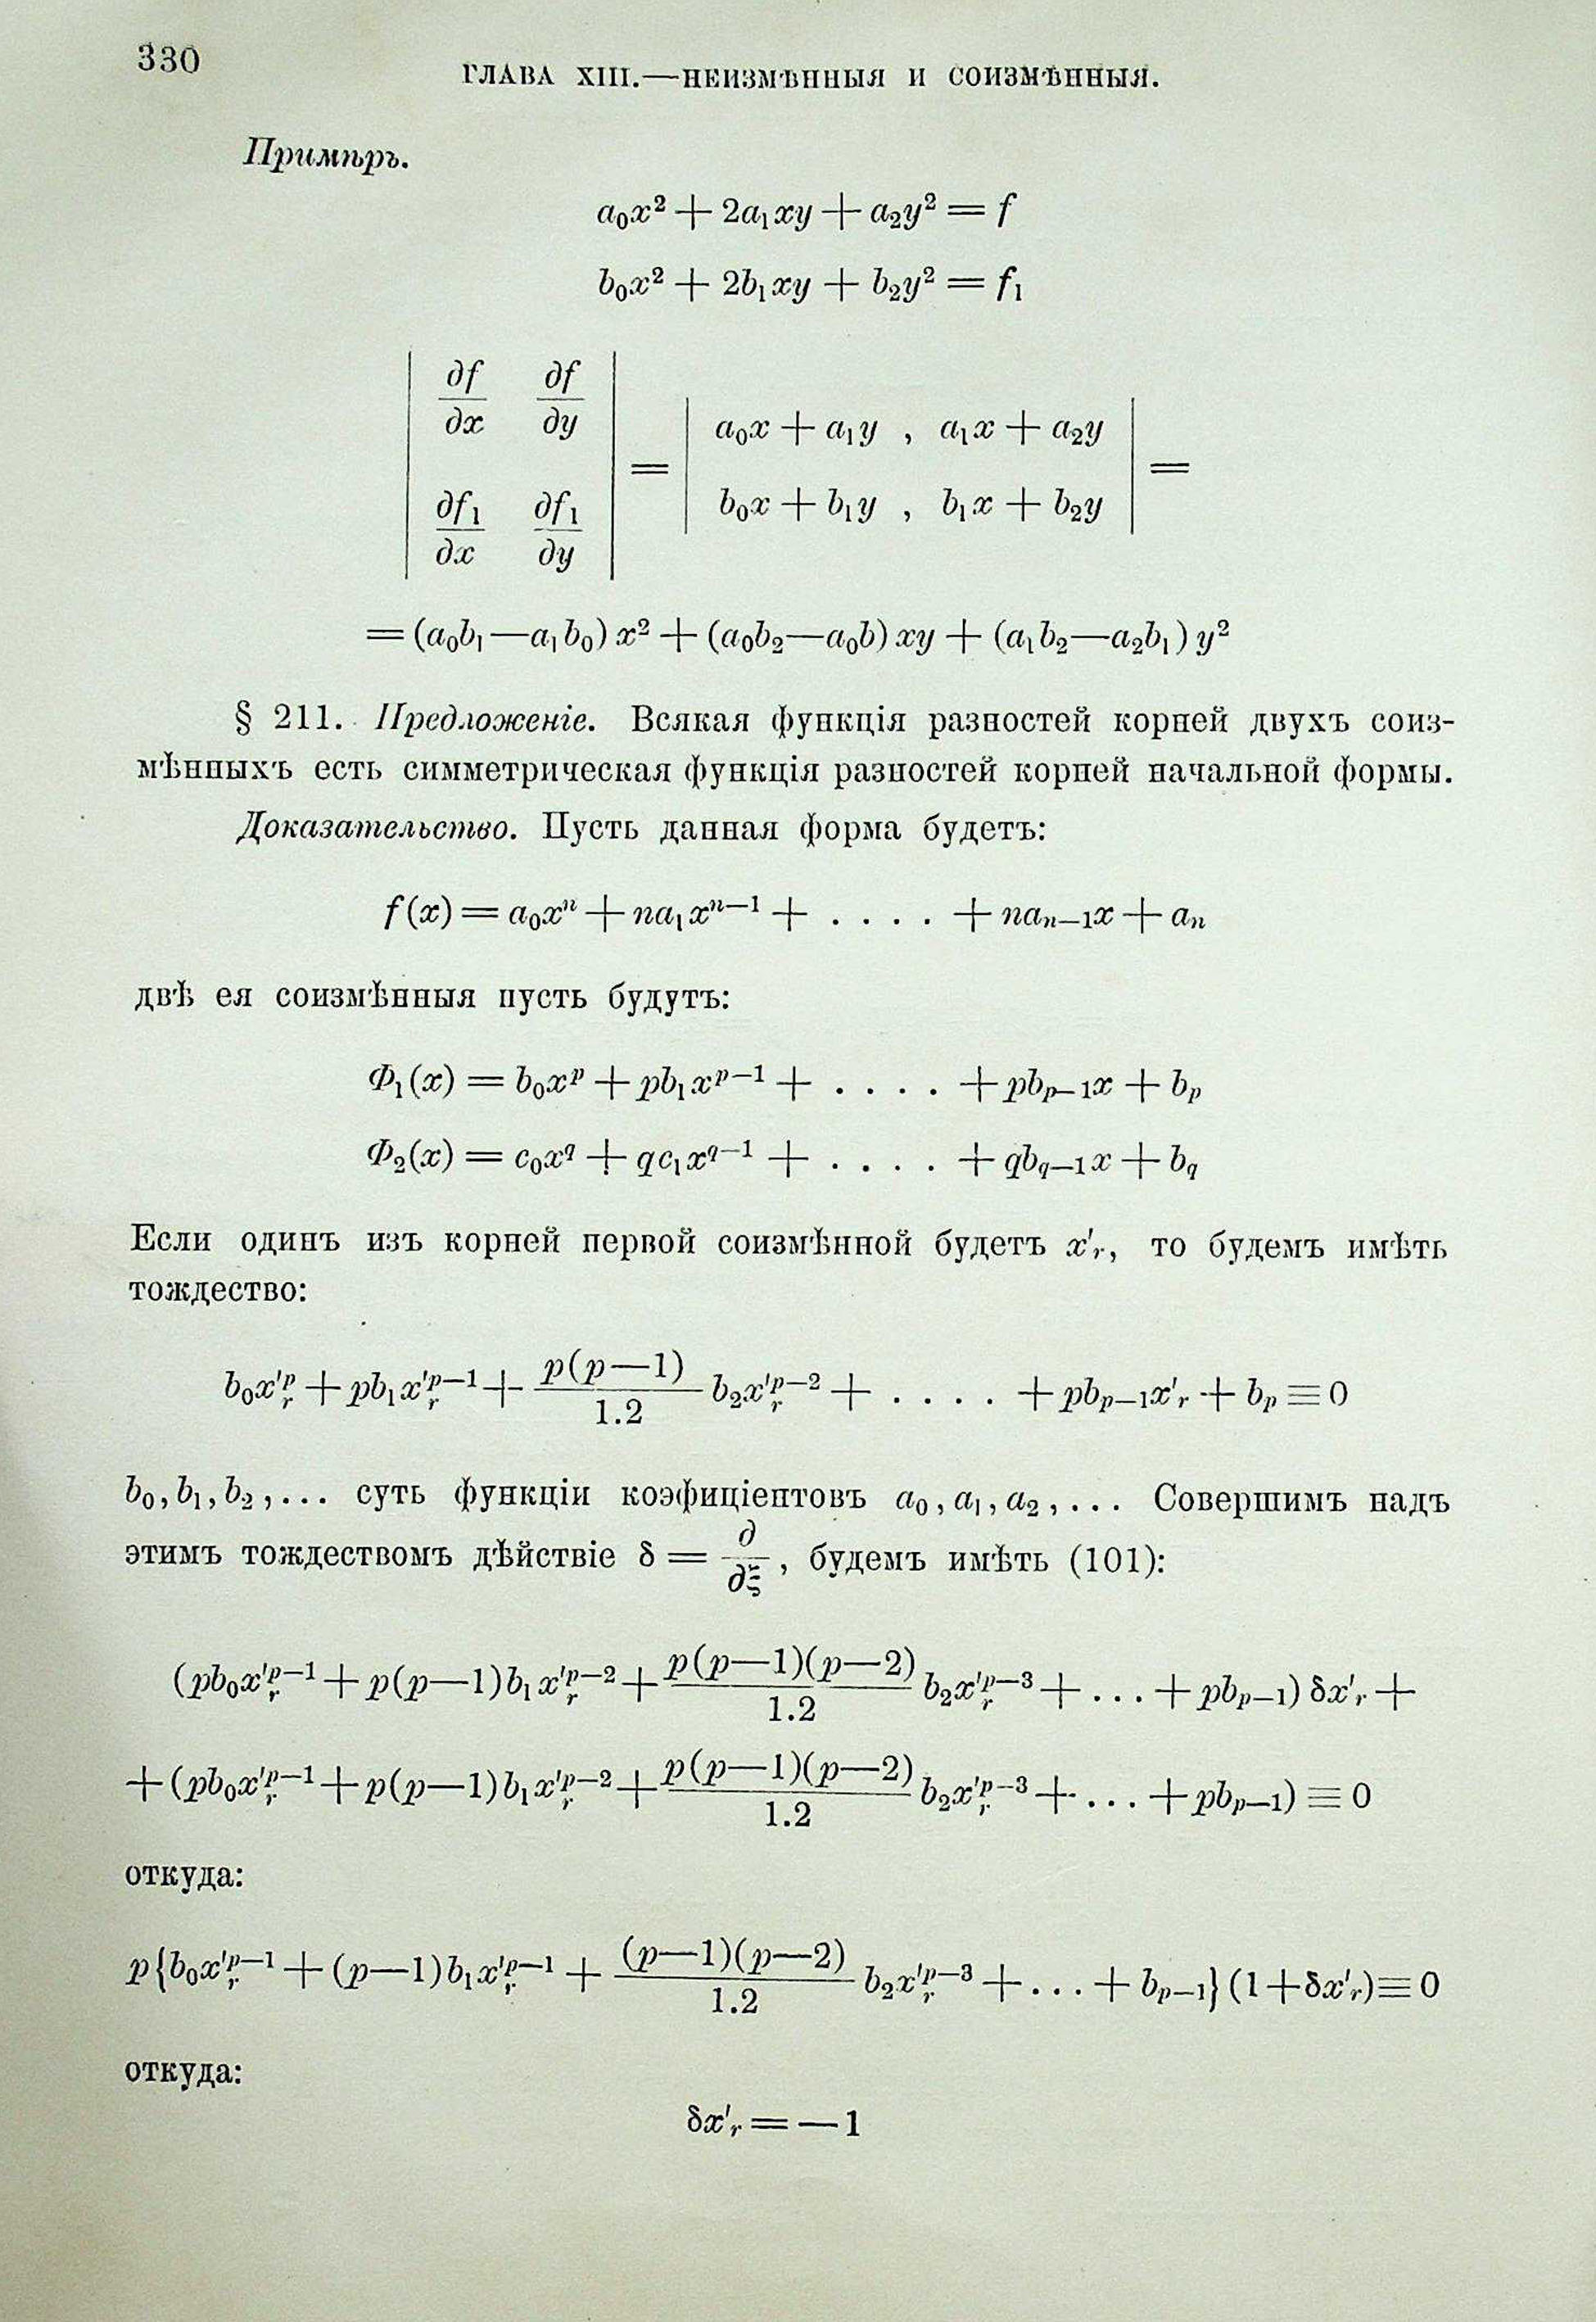 330
ГЛАВА XIII.—НЕИЗМѢННЫЯ И СОИЗМѢННЫЯ.
Примѣръ.
a₀x² + 2a₁xy + a₂y² = f
b₀x² + 2b₁xy + b₂y² = f₁
| ∂f/∂x ∂f/∂y ; ∂f₁/∂x ∂f₁/∂y | = | a₀x + a₁y , a₁x + a₂y ; b₀x + b₁y , b₁x + b₂y | =
= (a₀b₁—a₁b₀) x² + (a₀b₂—a₀b) xy + (a₁b₂—a₂b₁) y²
§ 211. Предложеніе. Всякая функція разностей корней двухъ соиз-
мѣнныхъ есть симметрическая функція разностей корней начальной формы.
Доказательство. Пусть данная форма будетъ:
f(x) = a₀xⁿ + na₁xⁿ⁻¹ + . . . . + naₙ₋₁x + aₙ
двѣ ея соизмѣнныя пусть будутъ:
Φ₁(x) = b₀x^p + pb₁x^{p—1} + . . . . + pb_{p—1}x + b_p
Φ₂(x) = c₀x^q + qc₁x^{q—1} + . . . . + qb_{q—1}x + b_q
Если одинъ изъ корней первой соизмѣнной будетъ x'_r, то будемъ имѣть
тождество:
b₀x'_r^p + pb₁x'_r^{p—1} + p(p—1)/1.2 b₂x'_r^{p—2} + . . . . + pb_{p—1}x'_r + b_p ≡ 0
b₀, b₁, b₂, ... суть функціи коэфиціентовъ a₀, a₁, a₂, ... Совершимъ надъ
этимъ тождествомъ дѣйствіе δ = ∂/∂ξ, будемъ имѣть (101):
(pb₀x'_r^{p—1} + p(p—1)b₁x'_r^{p—2} + p(p—1)(p—2)/1.2 b₂x'_r^{p—3} + ... + pb_{p—1}) δx'_r +
+ (pb₀x'_r^{p—1} + p(p—1)b₁x'_r^{p—2} + p(p—1)(p—2)/1.2 b₂x'_r^{p—3} + ... + pb_{p—1}) ≡ 0
откуда:
p{b₀x'_r^{p—1} + (p—1)b₁x'_r^{p—1} + (p—1)(p—2)/1.2 b₂x'_r^{p—3} + ... + b_{p—1}} (1 + δx'_r) ≡ 0
откуда:
δx'_r = — 1